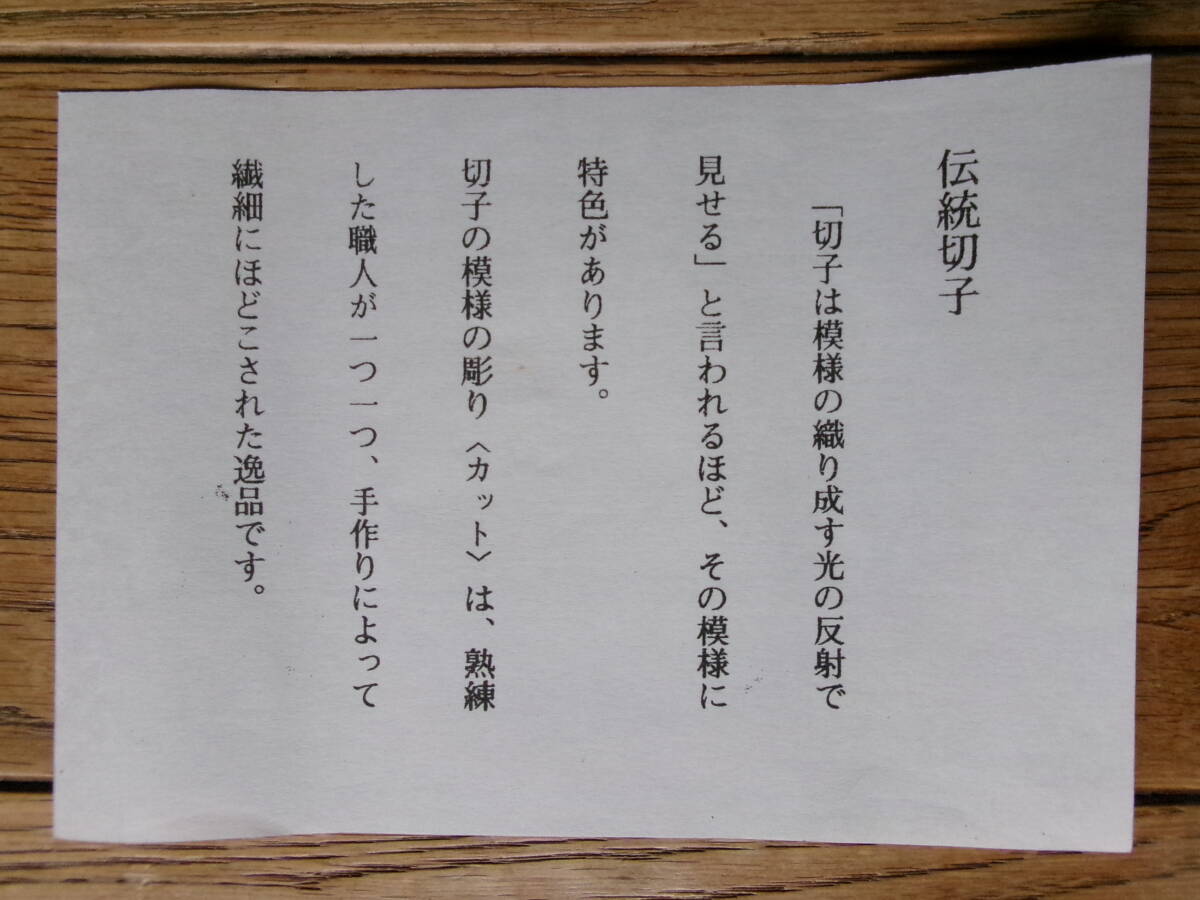 伝統切子
「切子は模様の織り成す光の反射で
見せる」と言われるほど、その模様に
特色があります。
切子の模様の彫り〈カット〉は、熟練
した職人が一つ一つ、手作りによって
繊細にほどこされた逸品です。